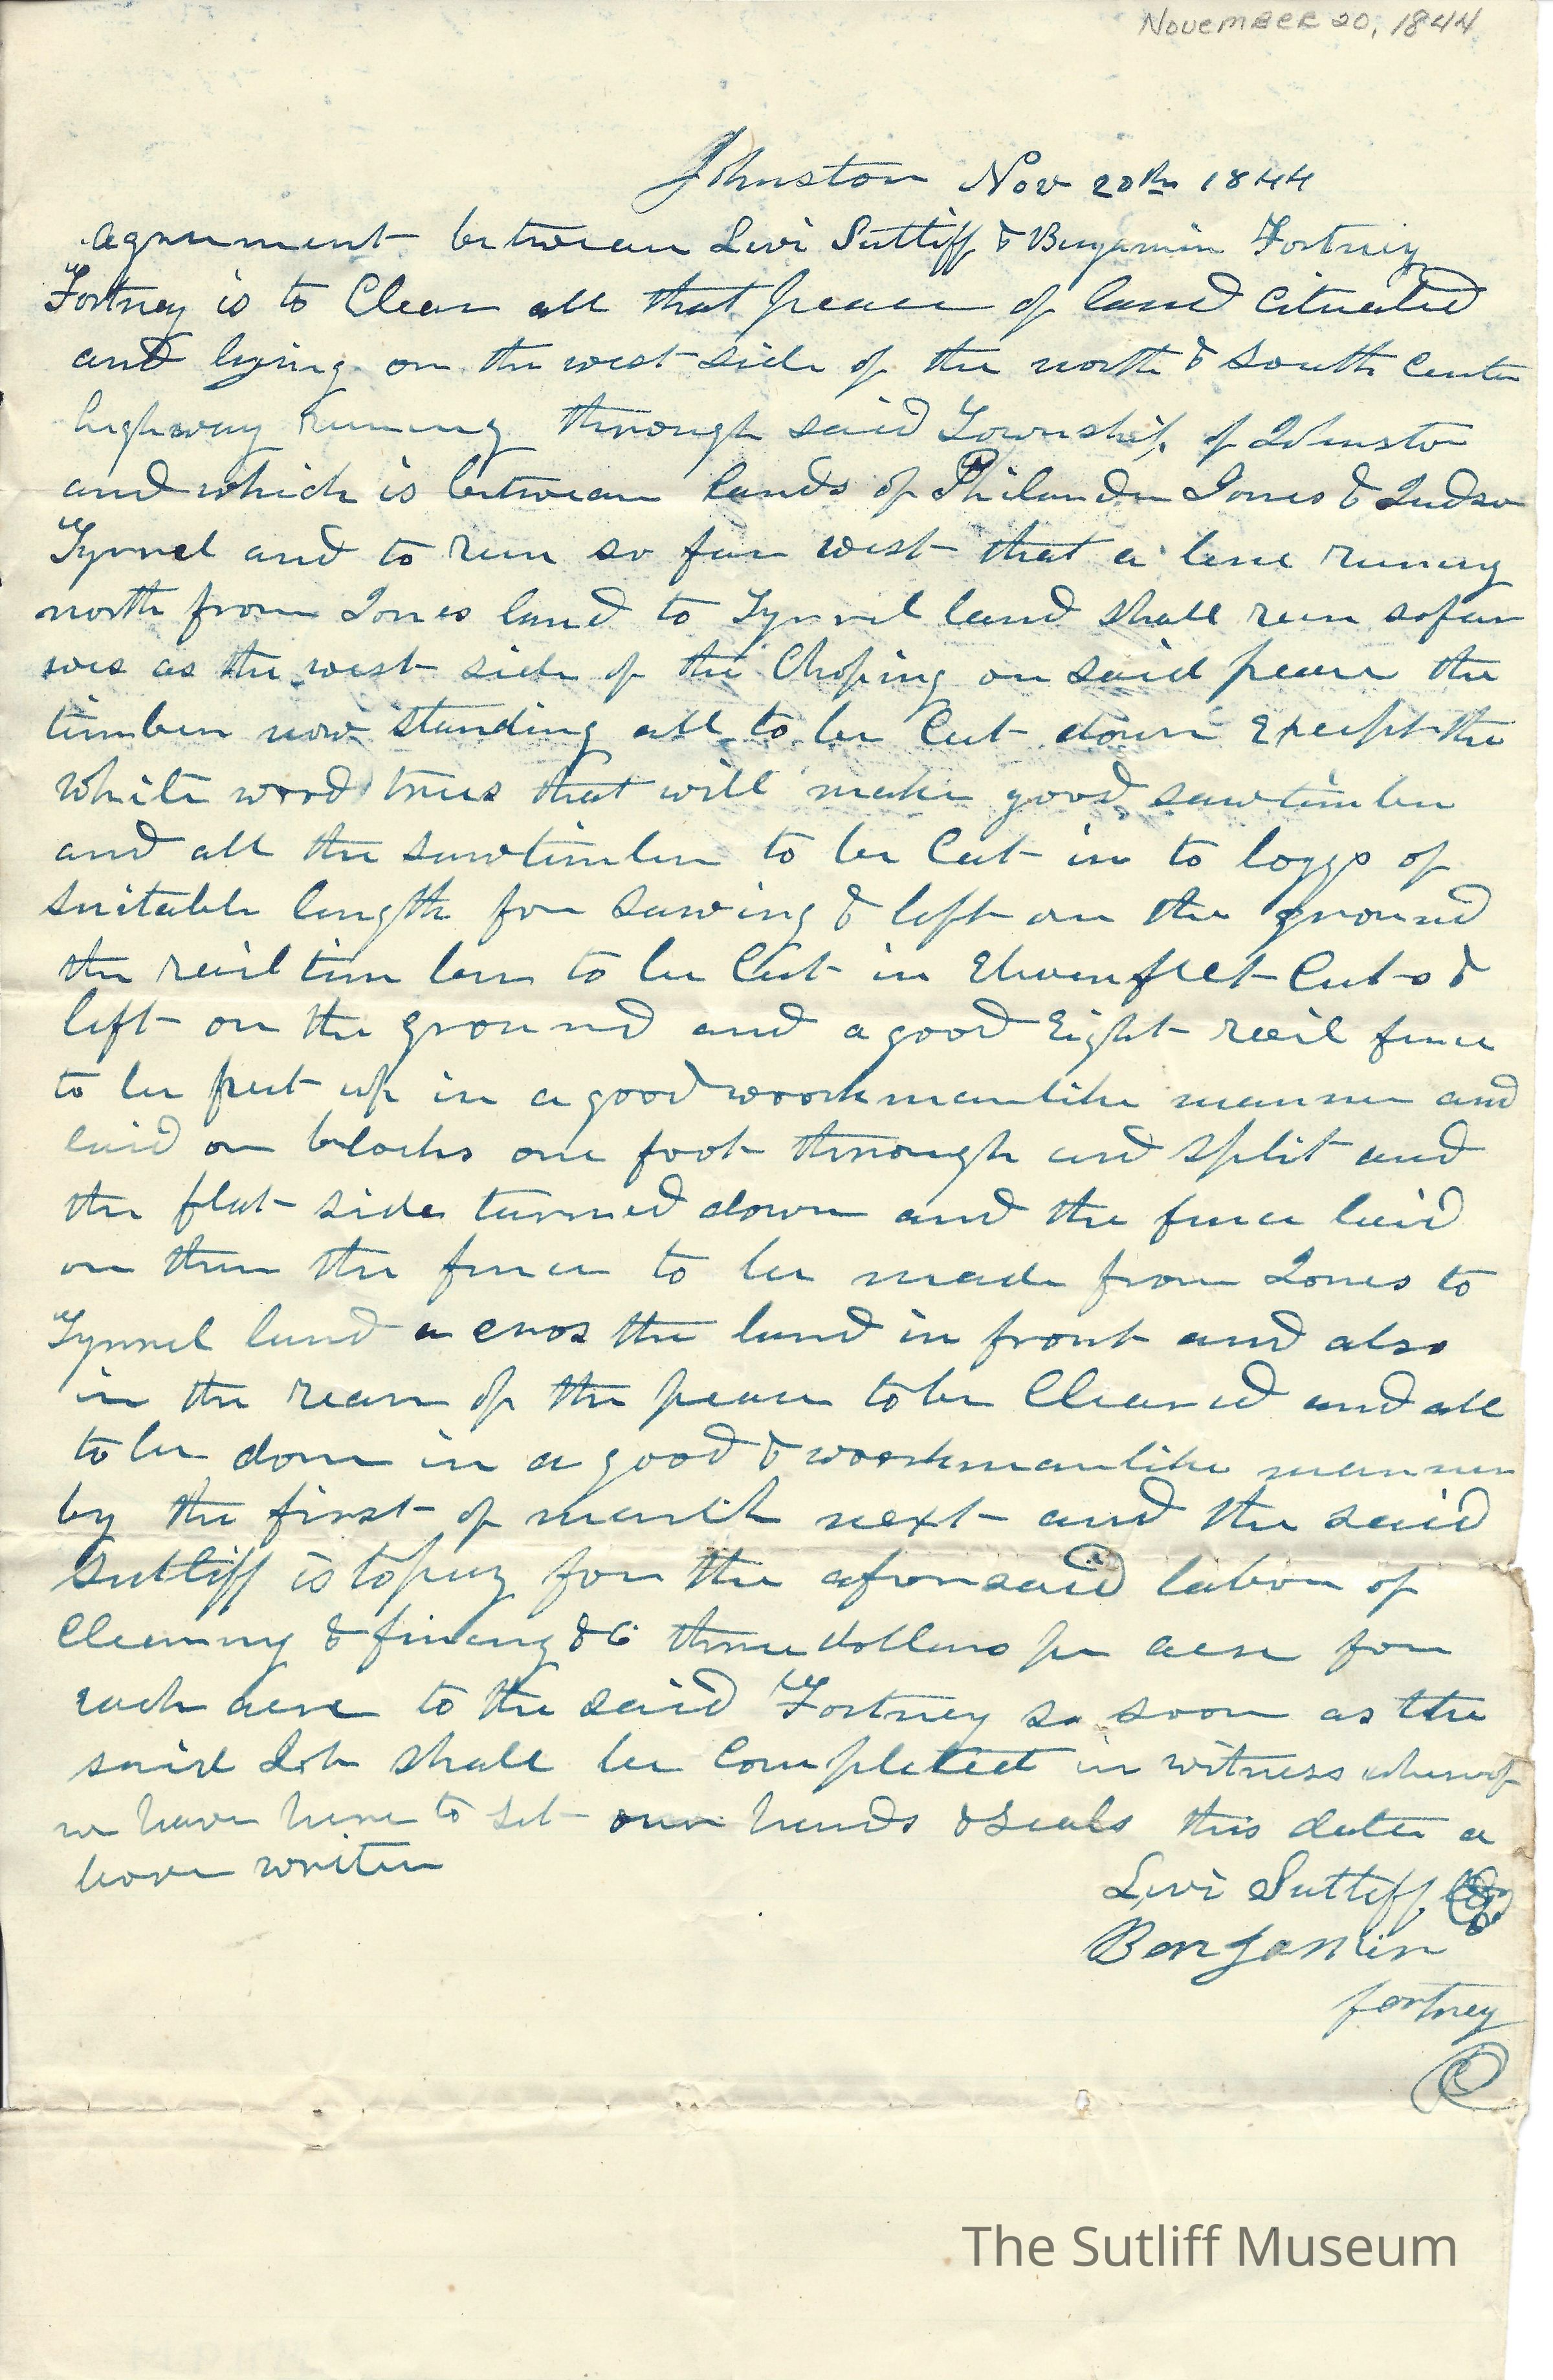 November 20, 1844
Johnston Nov 20th 1844
agreement between Levi Sutliff & Benjamin Fortney
Fortney is to Clear all that peace of land Cituated
and lying on the west side of the north & south Center
highway runing through said Township of Johnston
and which is between lands of Philander Jones & Judson
Tyrrel and to run so far west that a line runing
north from Jones land to Tyrrel land shall run so far
wes as the west side of the Choping on said peace the
timber now standing all to be Cut down Except the
white wood trees that will make good sawtimber
and all the sawtimber to be Cut in to loggs of
suitable length for sawing & left on the ground
the rail timber to be Cut in Eleven feet Cuts &
left on the ground and a good Eight rail fence
to be put up in a good woorkmanlike manner and
laid on blocks one foot through and split and
the flat side turned down and the fence laid
on them the fence to be made from Jones to
Tyrrel land a cross the land in front and also
in the rear of the peace to be Cleared and all
to be done in a good & woorkmanlike manner
by the first of march next and the said
Sutliff is to pay for the aforesaid labor of
Clearing & fencing &C three dollars per acre for
each acre to the said Fortney so soon as the
said Job shall be Completed in witness whereof
we have here to set our hands & seals this date a
bove writen
Levi Sutliff
Benjamin
fortney
The Sutliff Museum